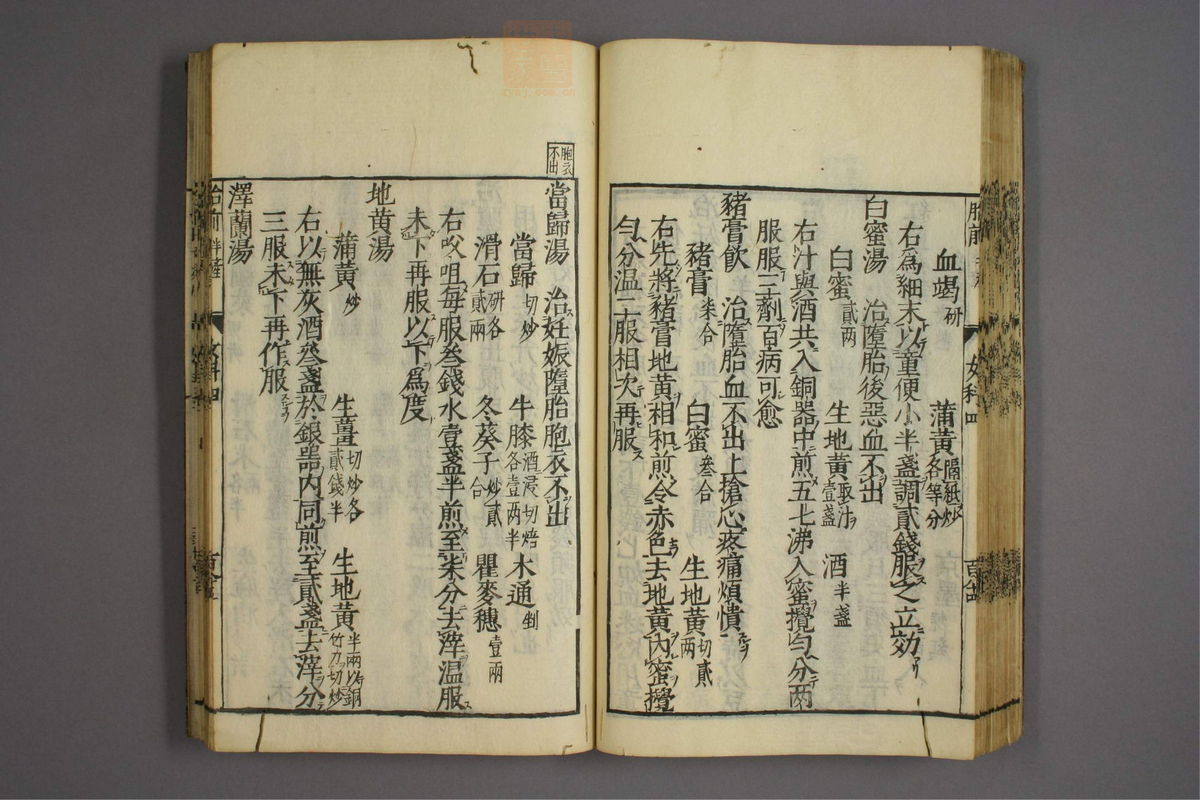 血竭研 蒲黄隔紙炒各等分
右為細末以童便小半盞調貳錢服之立効
白蜜湯 治墮胎後惡血不出
白蜜貳两 生地黄取汁壹盞 酒半盞
右汁與酒共入銅器中煎五七沸入蜜攪勻分两
服服三劑百病可愈
豬膏飲 治墮胎血不出上搶心疼痛煩憒
豬膏柒合 白蜜叁合 生地黄切貳两
右先將豬膏地黄相和煎令赤色去地黄內蜜攪
勻分温二服相次再服
胞衣不出
當歸湯 治妊娠墮胎胞衣不出
當歸切炒 牛膝酒浸切焙各壹两半 木通剉
滑石研各貳兩 冬葵子炒貳合 瞿麥穗壹兩
右㕮咀每服叁錢水壹盞半煎至柒分去滓温服
未下再服以下爲度
地黄湯
蒲黄炒 生薑切炒各貳錢半 生地黄半兩以銅竹刀切炒
右以無灰酒叁盞於銀器內同煎至貳盞去滓分
三服未下再作服
澤蘭湯
胎前
女科四